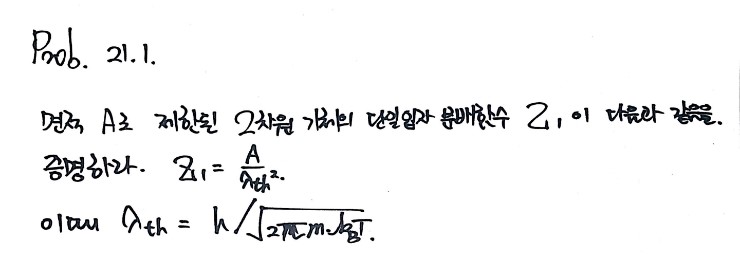 Prob. 21.1.
면적 A로 제한된 2차원 기체의 단일입자 분배함수 Z₁이 다음과 같음을.
증명하라. Z₁ = A/λth².
이때 λth = h/√2πmkBT.